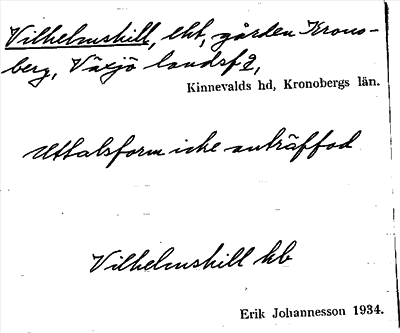 Vilhelmshill, lht, gården Krono-
berg, Växjö landsf2,
Kinnevalds hd, Kronobergs län.
Uttalsform icke anträffad
Vilhelmshill hb
Erik Johannesson 1934.